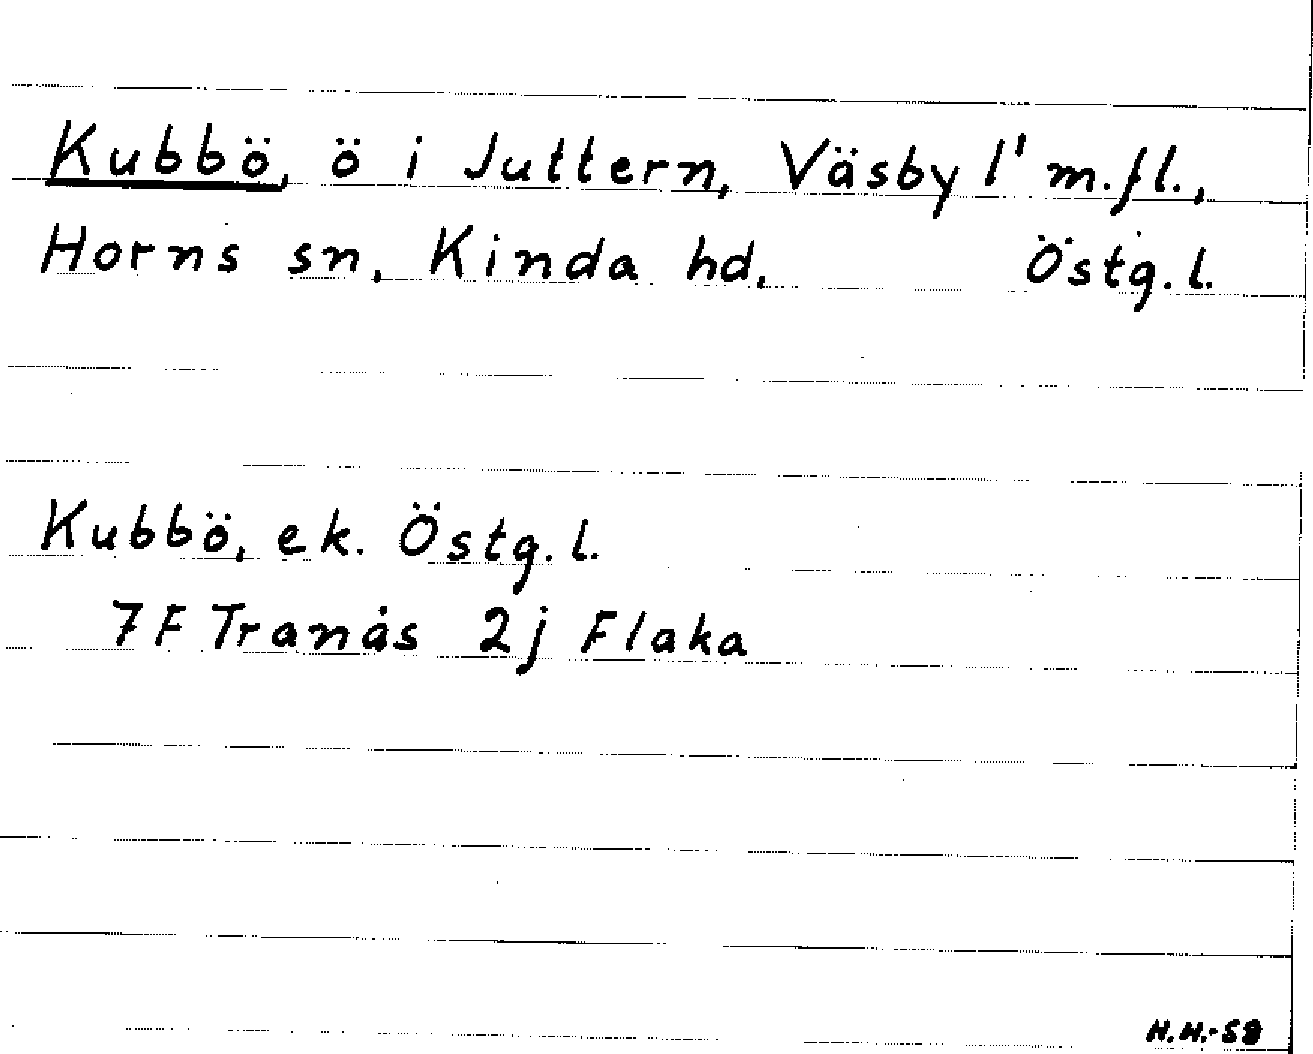 Kubbö, ö i Juttern, Väsby l' m.fl.,
Horns sn, Kinda hd, Östg.l.
Kubbö, ek. Östg.l.
7F Tranås 2j Flaka
N.H.-58